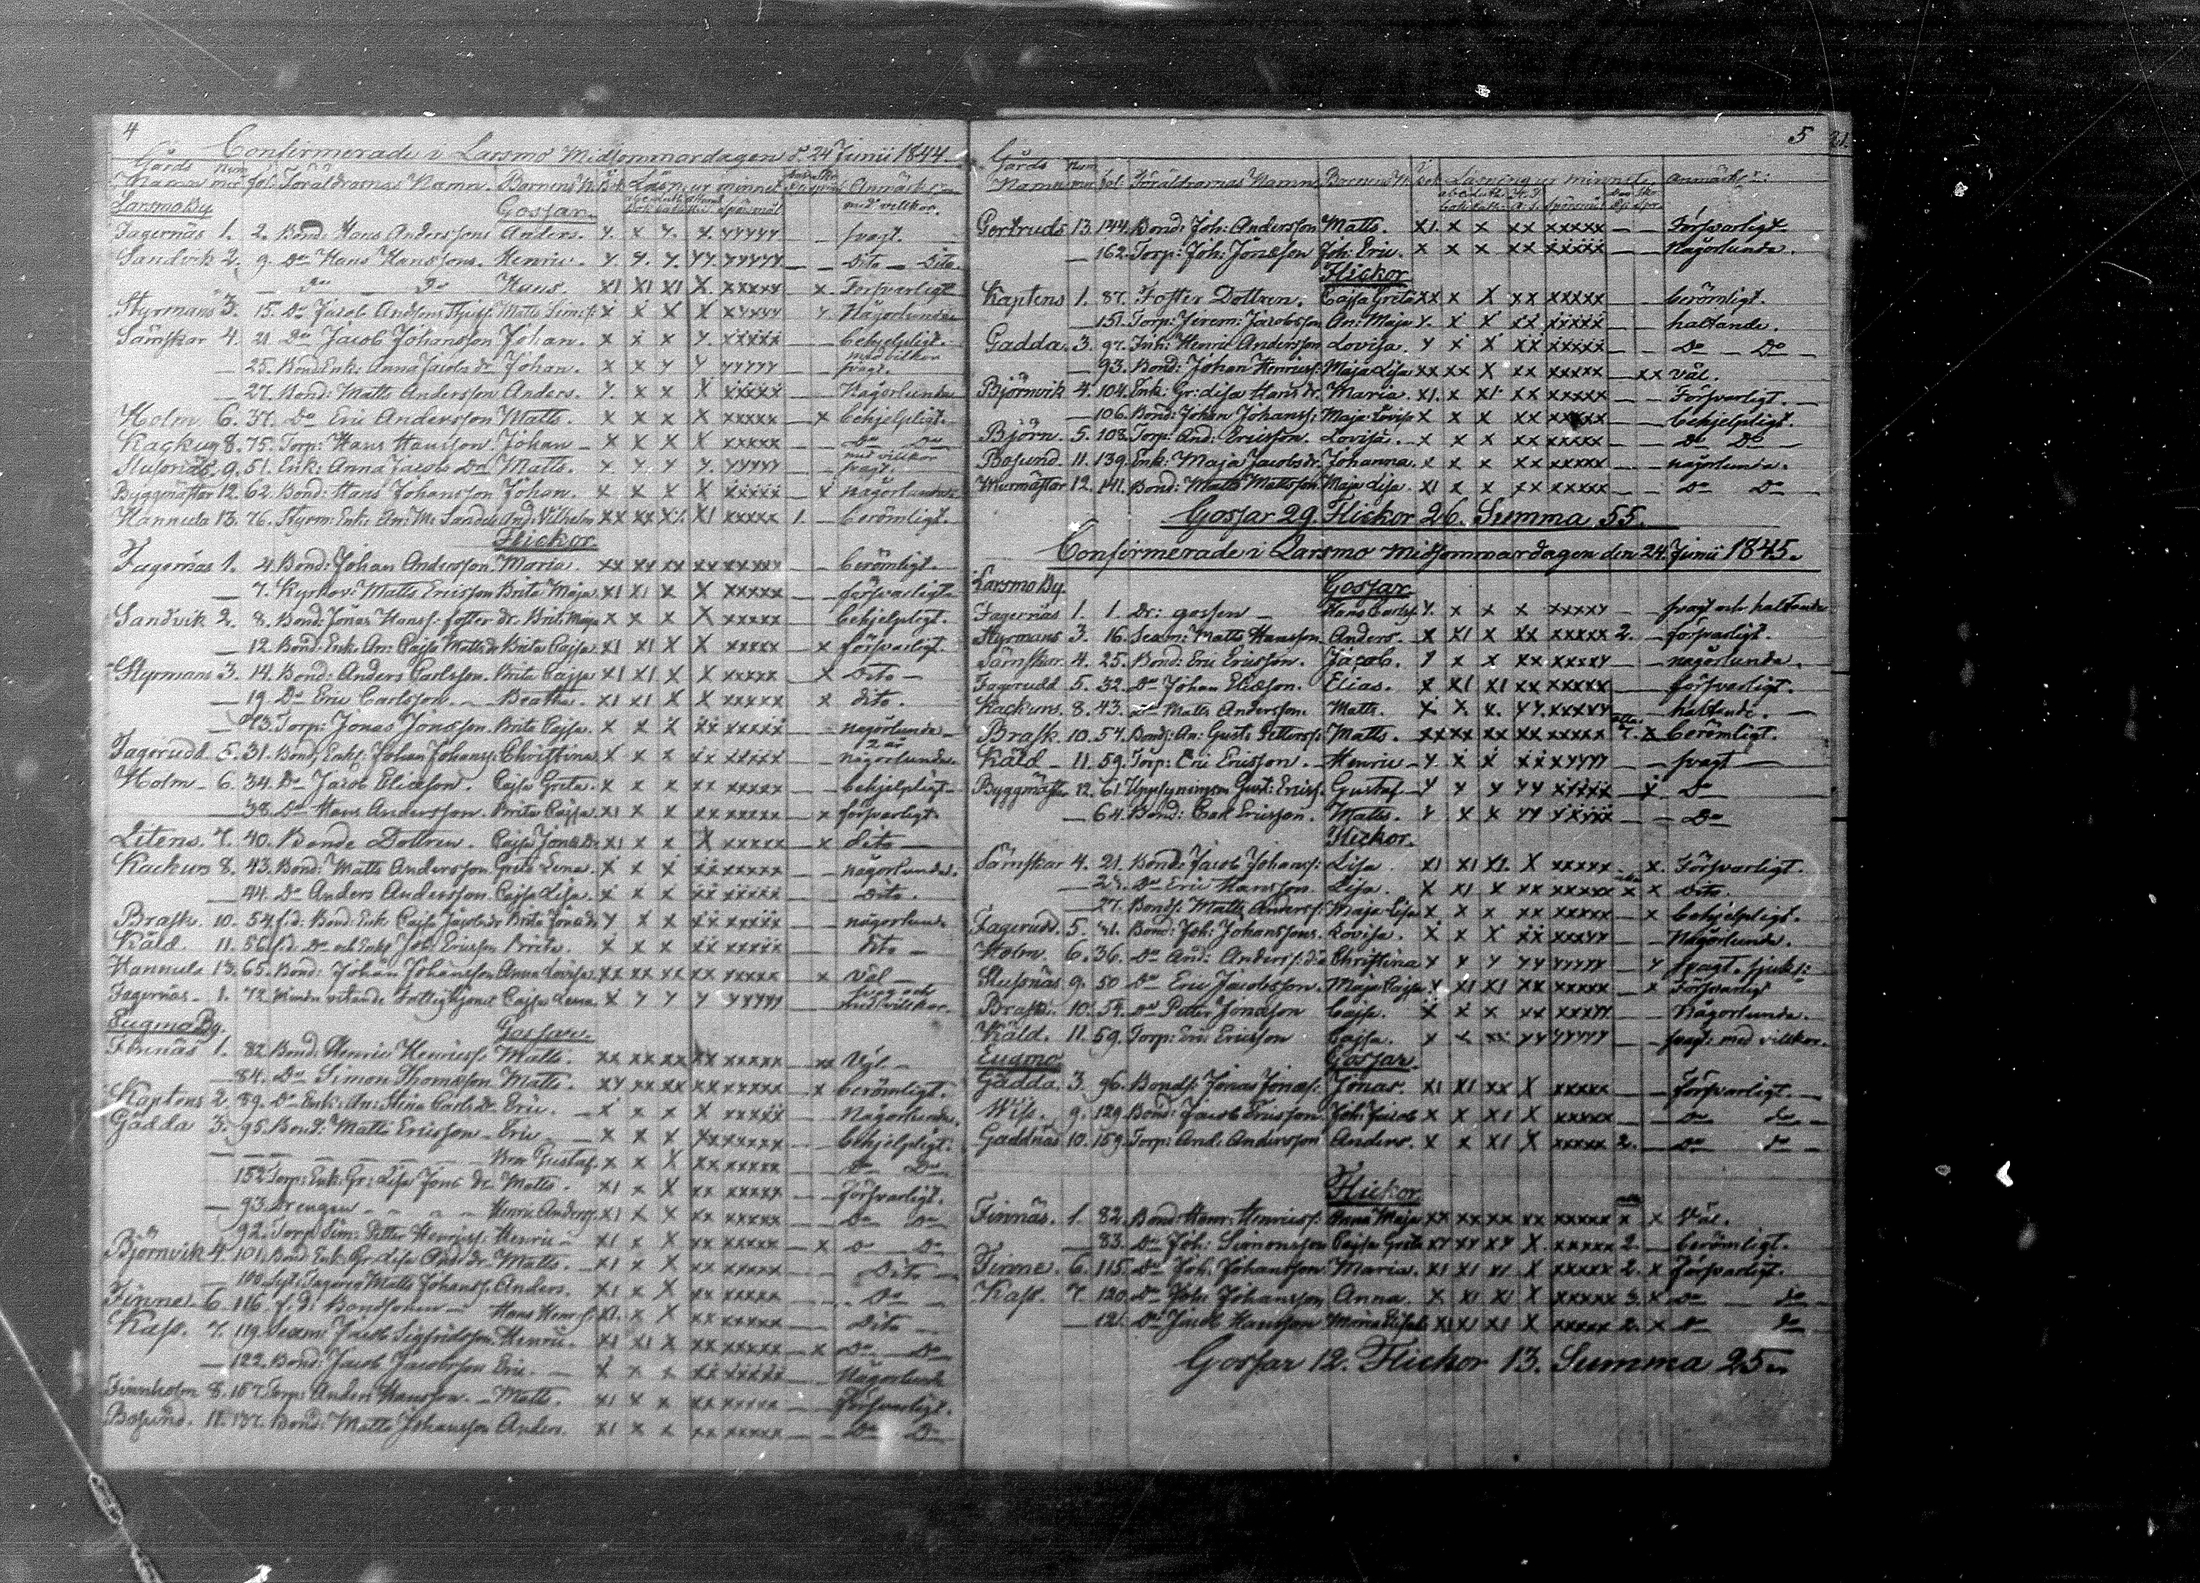 4
Confirmerade i Larsmo Midsommardagen d. 24 Junii 1844
Gårds Num
Namn mer fol. Föräldrarnas Namn. Barnens N. Bok Läsn: ur minnet Anmärkn:
Larsmo By Gossar. med villkor.
Fagernäs 1. 2. Bond: Hans Anderssons Anders. y. x y. x. yyyyy svagt.
Sandvik 2. 9. Do Hans Hanssons. Henric. y y. y. yy yyyyy Dito Dito.
Do Do Hans. x1 x1 x1 x xxxxx x Försvarligt
Styrmans 3. 15. Do Jacob x x x x xyxyy y Någorlunda
Sämskar 4. 21. Do Jacob Johansson Johan. x x x y xxxxx behjelpligt.
med vilkor
25. Bond. Enk: Anna Jacobs dr Johan. x x y y yyyyy svagt.
27. Bond: Matts Andersson Anders. y. x x x xxxxx Någorlunda
Holm 6. 37. Do Eric Andersson Matts. x x x x xxxxx x behjelpligt.
Kackur 8. 75. Torp: Hans Hansson. Johan x x x x xxxxx Do Do
med villkor
Stusnäs. 9. 51. Enk: Anna Jacobs Dr. Matts. y y y y. yyyyy svagt.
Byggmästar 12. 62. Bond: Hans Johansson Johan. x x x x xxxxx x någorlunda
Hannula 13. 76. Styrm: Enk: An: M: And: Vilhelm xx xx x x1 xxxxx 1. berömligt.
Flickor.
Fagernäs 1. 4. Bond: Johan Andersson. Maria. xx xx xx xx xxxxx berömligt.
7. Kyrkov: Matts Ericsson Brita Maja x1 x1 x x xxxxx försvarligt
Sandvik 2. 8. Bond: Jonas Hanss: foster dr. Brit: Maja x x x x xxxxx behjelpligt.
12. Bond: Enk: An: Cajsa Matts dr Brita Cajsa. x1 x1 x x xxxxx x försvarligt.
Styrmans 3. 14. Bond: Anders Carlsson. Brita Cajsa x1 x1 x x xxxxx x Dito
19. Do Eric Carlsson. Beatha. x1 x1 x x xxxxx x dito.
73. Torp: Jonas Jonsson. Brita Cajsa. x x x xx xxxxx någorlunda
2 år
Fagerudd. 5. 31. Bond. Enkl. Johan Johanss: Christina. x x x xx xxxxx någorlunda
Holm 6. 34. Do Jacob Eliasson. Cajsa Greta. x x x xx xxxxx behjelpligt
38. Do Hans Andersson. Brita Cajsa. x x x xx xxxxx x försvarligt.
Litens. 7. 40. Bonde Dottren. Cajsa Jons Dr. x1 x x x xxxxx x dito
Kackurs 8. 43. Bond: Matts Andersson Greta Lena. x x x xx xxxxx någorlunda.
44. Do Anders Andersson. Cajsa Lisa. x x x xx xxxxx Dito.
Brask. 10. 54. f.d. Bond. Enk: Cajsa Jacobs dr Brita Jonsdr y x x xx xxxxx någorlund.
Käld. 11. 56. f.d. Do Joh: Ericsson Brita. x x x xx xxxxx dito
Hannula 13. 65. Bond: Johan Johansson Anna Lovisa. xx xx xx xx xxxxx x väl
Fagernäs 1. 72. Mindre vetande Cajsa Lena. x y y y yyyyy svag och med villkor.
Eugmo By. Gossar.
Finnäs 1. 82. Bond: Henric Henricss: Matts. xx xx xx xx xxxxx xx Väl
84. Do Simon Thomasson Matts. xy xx xx xx xxxxx x berömligt.
Kaptens 2. 89. Do Enk: An: Stina Carls Dr. Eric. x x x x xxxxx Någorlunda.
Gädda 3. 95. Bond: Matts Ericsson Eric x x x xx xxxxx behjelpligt.
Bror Gustaf. x x x xx xxxxx Do Do
152. Torp: Enk: Gr: Lisa Jons dr Matts. x1 x x xx xxxxx försvarligt.
93. Drengen Henric Anderss. x1 x x xx xxxxx Do Do
92. Torp. Sim: Petter Henricss: Henric x1 x x xx xxxxx x Do Do
Björnvik 4. 101. Bond. Enk: Gr. Lisa And: dr. Matts. x1 x x xx xxxxx Dito
100. Matts Johanss: Anders. x1 x x xx xxxxx Do
Finne 6. 116. f. d: Bondsonen Hans Henr: s: x1. x x xx xxxxx Dito
Kass. 7. 119. Seam: Jacob Sigfridsson Henric. x1 x1 x xx xxxxx x Do Do
122. Bond: Jacob Jacobsson Eric. x x x xx xxxxx Någorlund.
Finnholm 8. 157. Torp: Anders Hansson. Matts. x1 x x xx xxxxx försvarligt.
Bosund. 11. 137. Bond: Matts Johansson Anders. x1 x x xx xxxxx Do Do
5 21.
Gårds Num
Namn mer fol Föräldrarnas Namn Barnens N: Bok Läsning ur minnet. Anmärkn:
Gertruds 13. 144. Bond: Joh: Andersson Matts. x1. x x xx xxxxx Försvarligt
162. Torp: Joh: Jonsson Joh: Eric. x x x xx xxxxx Någorlunda.
Flickor
Kaptens 1. 87. Foster Dottren. Cajsa Greta xx x x xx xxxxx berömligt.
151. Torp: Jerem: Jacobsson An: Maja y. x x xx xxxxx haltande.
Gädda. 3. 97. Inh: Henric Andersson Lovisa. y x x xx xxxxx Do Do
93. Bond: Johan Henricss: Maja Lisa xx xx x xx xxxxx xx väl.
Björnvik 4. 104. Enk: Gr: Lisa Hans dr. Maria. x1. x x1 xx xxxxx Försvarligt.
106. Bond: Johan Johanss: Maja Lovisa x x x xx xxxxx behjelpligt.
Björn. 5. 108. Torp: And: Ericsson. Lovisa. x x x xx xxxxx Do Do
Bosund. 11. 139. Enk: Maja Jacobs dr. Johanna. x x x xx xxxxx någorlunda.
Murmästar 12. 141. Bond: Matts Mattsson. Maja Lisa. x1 x x xx xxxxx Do Do
Gossar 29. Flickor 26. Summa 55.
Confirmerade i Larsmo midsommardagen den 24 Junii 1845.
Larsmo By. Gossar
Fagernäs 1. 1 Dr: gossen Hans Carlss. y. x x x xxxxy svagt och haltande
Styrmans 3. 16. Seam: Matts Hansson. Anders. x x1 x xx xxxxx 2. försvarligt.
Sämskar. 4. 25. Bond: Eric Ericsson. Jacob. y x x xx xxxxy någorlunda.
Fagerudd 5. 32. Do Johan Eliasson. Elias. x x1 x1 xx xxxxx försvarligt.
Kackurs. 8. 43. Do Matts Andersson. Matts. x x. x. yy. xxxyy haltande.
Brask 10. 57. Bond: An: Gust: Petterss: Matts. xx xx xx xx xxxxx 7. x berömligt.
Käld 11. 59. Torp: Eric Ericsson. Henric y x x xx xyyyy svagt
Byggmäst. 12. 61. Gust: Ericss. Gustaf y y x yy xxxxx x Do
64. Bond: Carl Ericsson. Matts. y x x yy yxxxx Do
Flickor.
Sämskar 4. 21. Bond: Jacob Johanss: Lisa. x1 x1 x1. x xxxxx x. Försvarligt.
Do Eric Hansson. Lisa. x x1 x xx xxxxx x x Dito.
27. Bond: Matts Anderss: Maja Lisa x x x xx xxxxx x behjelpligt.
Fagerudd. 5. 31. Bond: Joh: Johanssons. Lovisa. x x x xx xxxyy Någorlunda.
Holm. 6. 36. Do And: Anderss: Christina y y y yy yyyyy y svagt. sjukl:
Stusnäs 9. 50 Do Eric Jacobsson. Maja Cajsa y x1 x1 xx xxxxx x Försvarligt
Brask. 10. 54. Do Petter Jonsson Cajsa. x x x xx xxxyy Någorlunda.
Käld. 11. 59. Torp: Eric Ericsson Cajsa. x x xx yy yyyyy svagt: med villkor.
Eugmo Gossar.
Gädda. 3. 96. Bond: Jonas Jonass: Jonas. x1 x1 xx x xxxxx försvarligt.
Wiss. 9. 129. Bond: Jacob Ericsson Joh: Jacob x x x1 x xxxxx Do do
Gäddnäs 10. 159. Torp: And: Andersson Anders. x x x1 x xxxxx 2. Do do
Flickor
Finnäs. 1. 82. Bond: Henr: Henricss: Anna Maja xx xx xx xx xxxxx x x Väl.
83. Do Joh: Simonsson Cajsa Greta xy xy xy x xxxxx 2. berömligt.
Finne. 6. 115. Do Joh: Johansson Maria. x1 x1 x1 x xxxxx 2. x försvarligt.
Kass. 7. 120. Do Joh: Johansson Anna. x x1 x1 x xxxxx 3. x Do do
121. Do Jacob Hansson Maria x1 x1 x1 x xxxxx 2. x Do do
Gossar 12. Flickor 13. Summa 25.